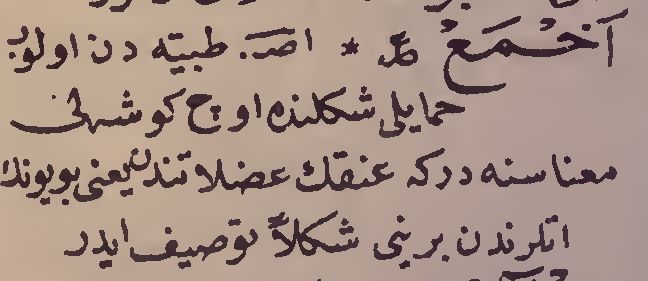 اَخْمَعْ * اصـ. طبیه دن اولوب
حمایلی شكلنده اوچ كوشه‌لی
معناسنه در كه عنقك عضلاتندن یعنی بویونك
اتلرندن برینی شكلاً توصیف ایدر